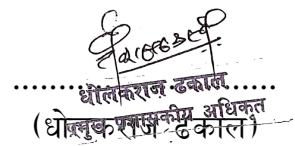 धोलकराज ढकाल
प्रमुख प्रशासकीय अधिकृत
(धोलकराज ढकाल)